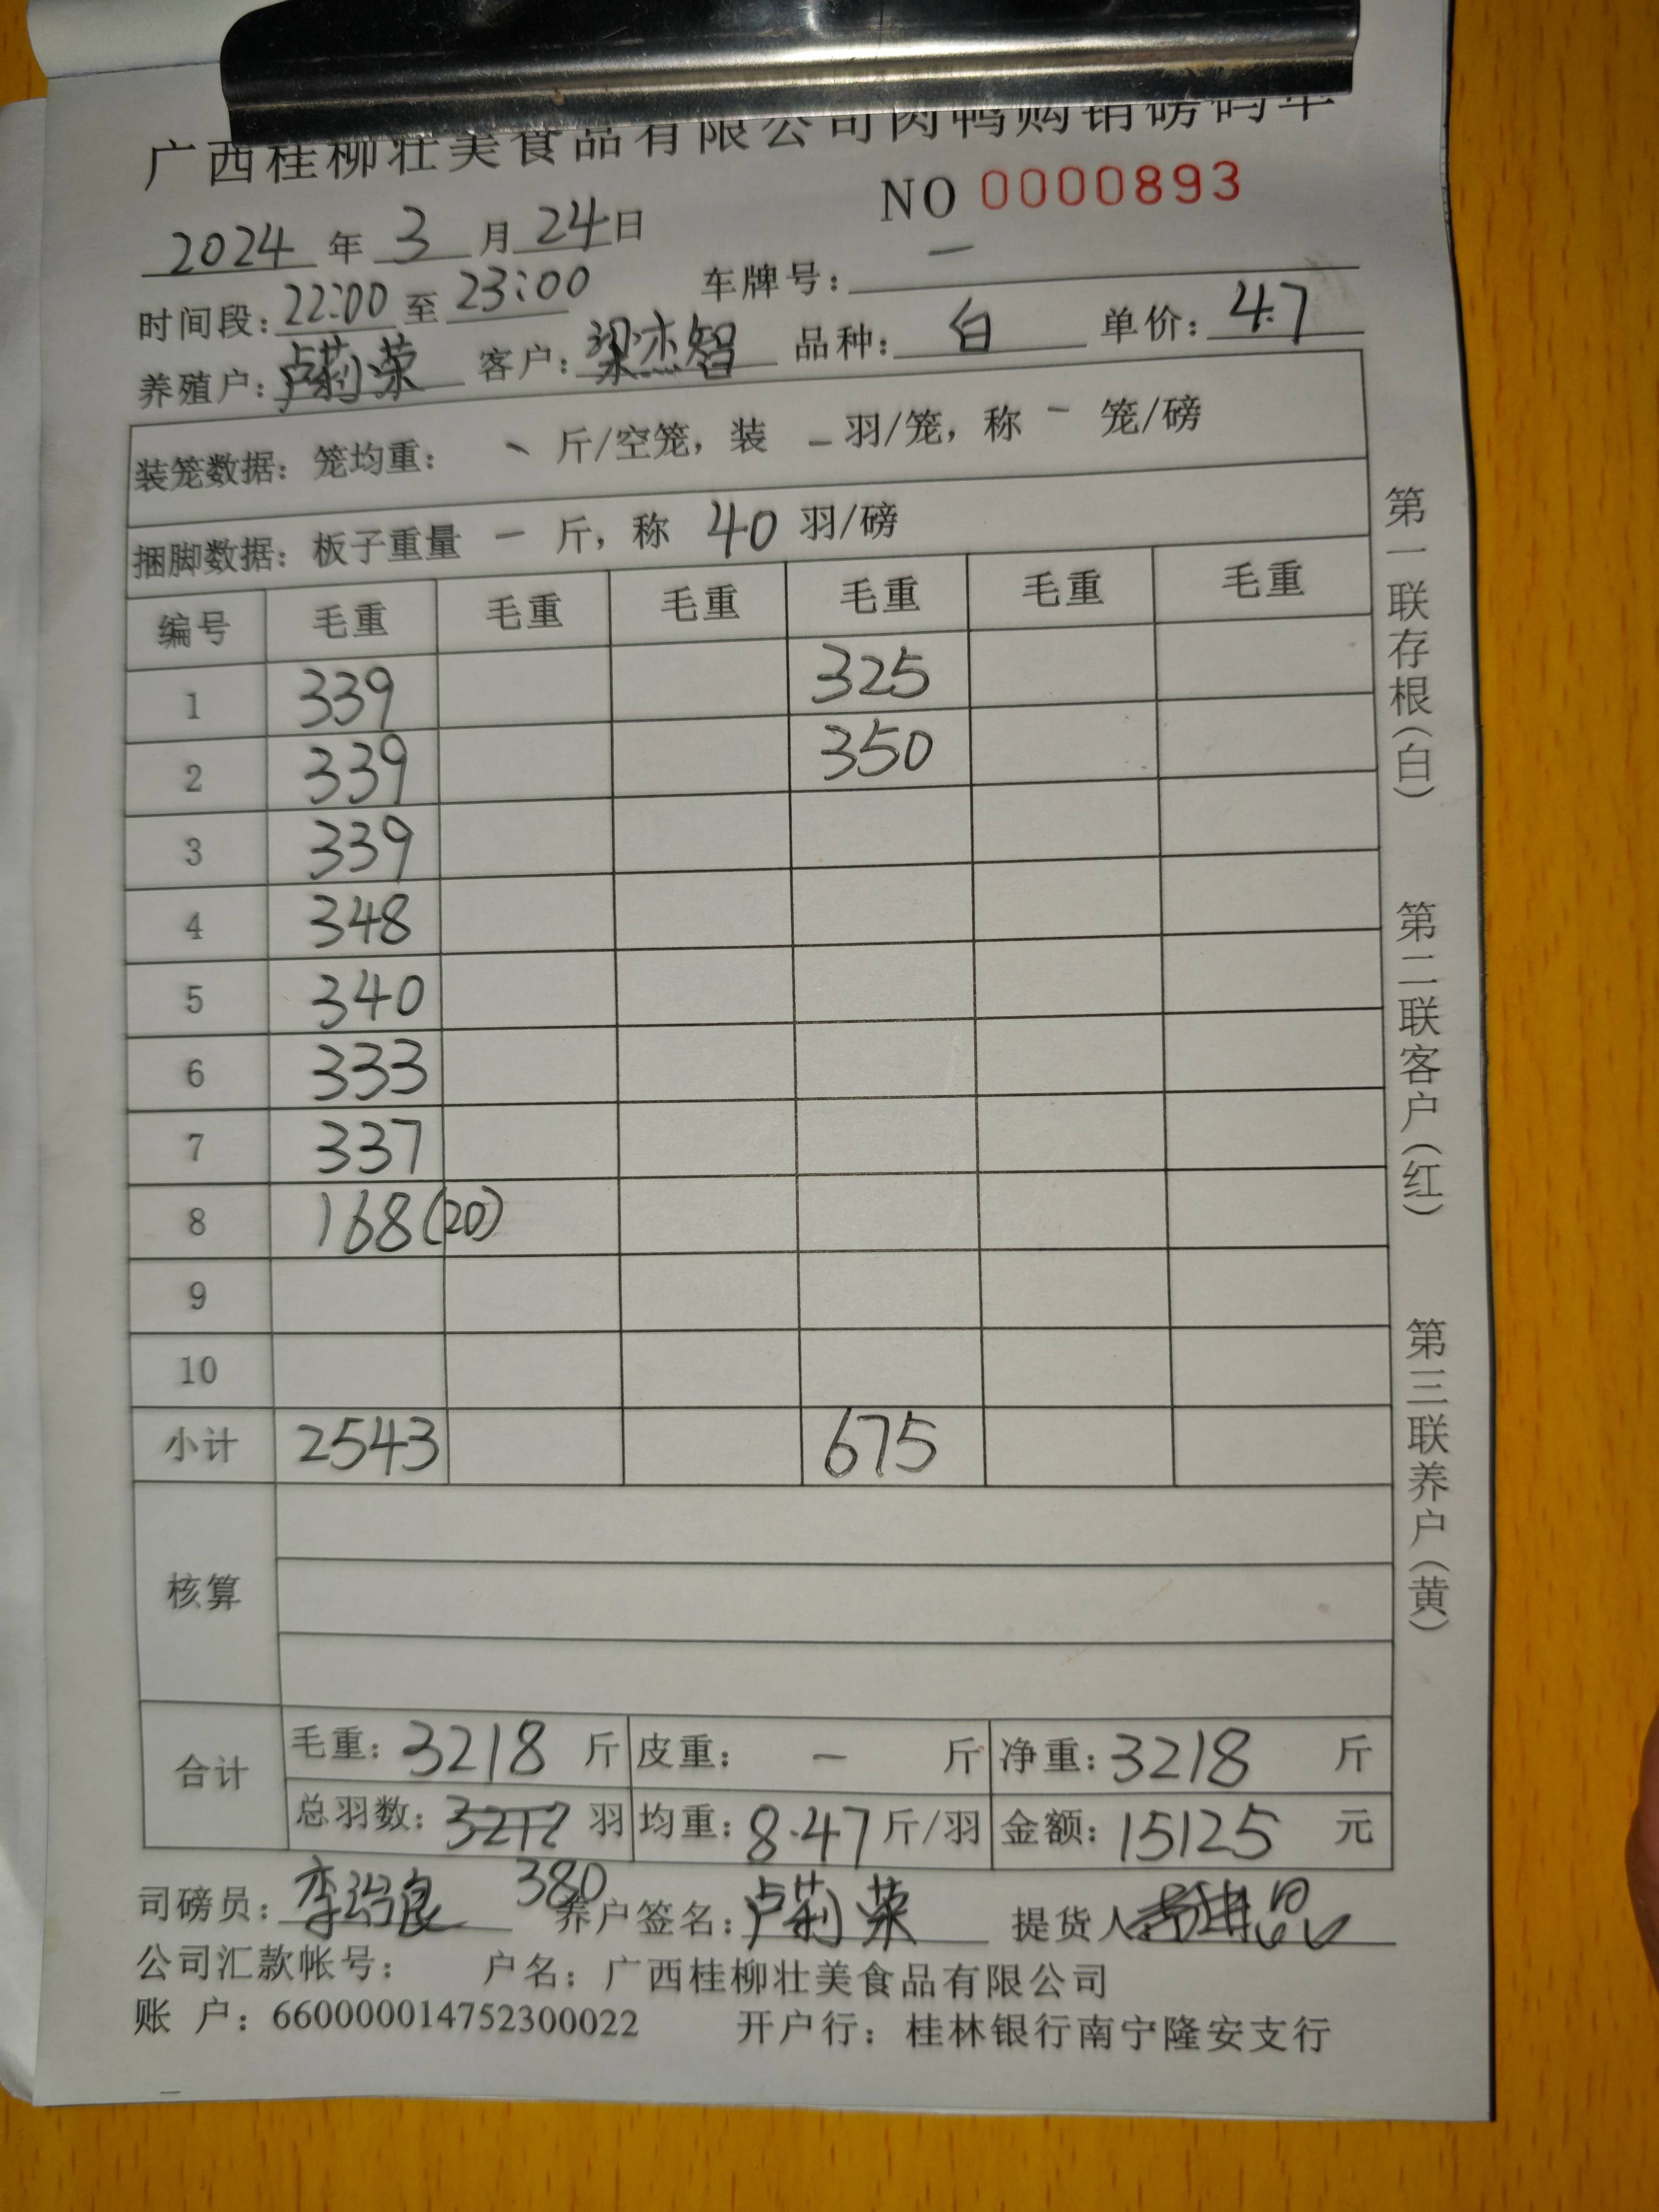 广西桂柳壮美食品有限公司肉鸭购销磅码单
NO 0000893
2024 年 3 月 24 日
时间段: 22:00 至 23:00 车牌号: —
养殖户: 卢莉荣 客户: 梁杰智 品种: 白 单价: 4.7
装笼数据: 笼均重: - 斤/空笼, 装 - 羽/笼, 称 - 笼/磅
捆脚数据: 板子重量 - 斤, 称 40 羽/磅
编号 毛重 毛重 毛重 毛重 毛重 毛重
1 339 325
2 339 350
3 339
4 348
5 340
6 333
7 337
8 168(20)
9
10
小计 2543 675
核算
合计 毛重: 3218 斤 皮重: — 斤 净重: 3218 斤
总羽数: 羽 均重: 8.47 斤/羽 金额: 15125 元
380
司磅员: 李 良 养户签名: 卢莉荣 提货人
公司汇款帐号: 户名: 广西桂柳壮美食品有限公司
账 户: 660000014752300022 开户行: 桂林银行南宁隆安支行
第一联存根(白)
第二联客户(红)
第三联养户(黄)